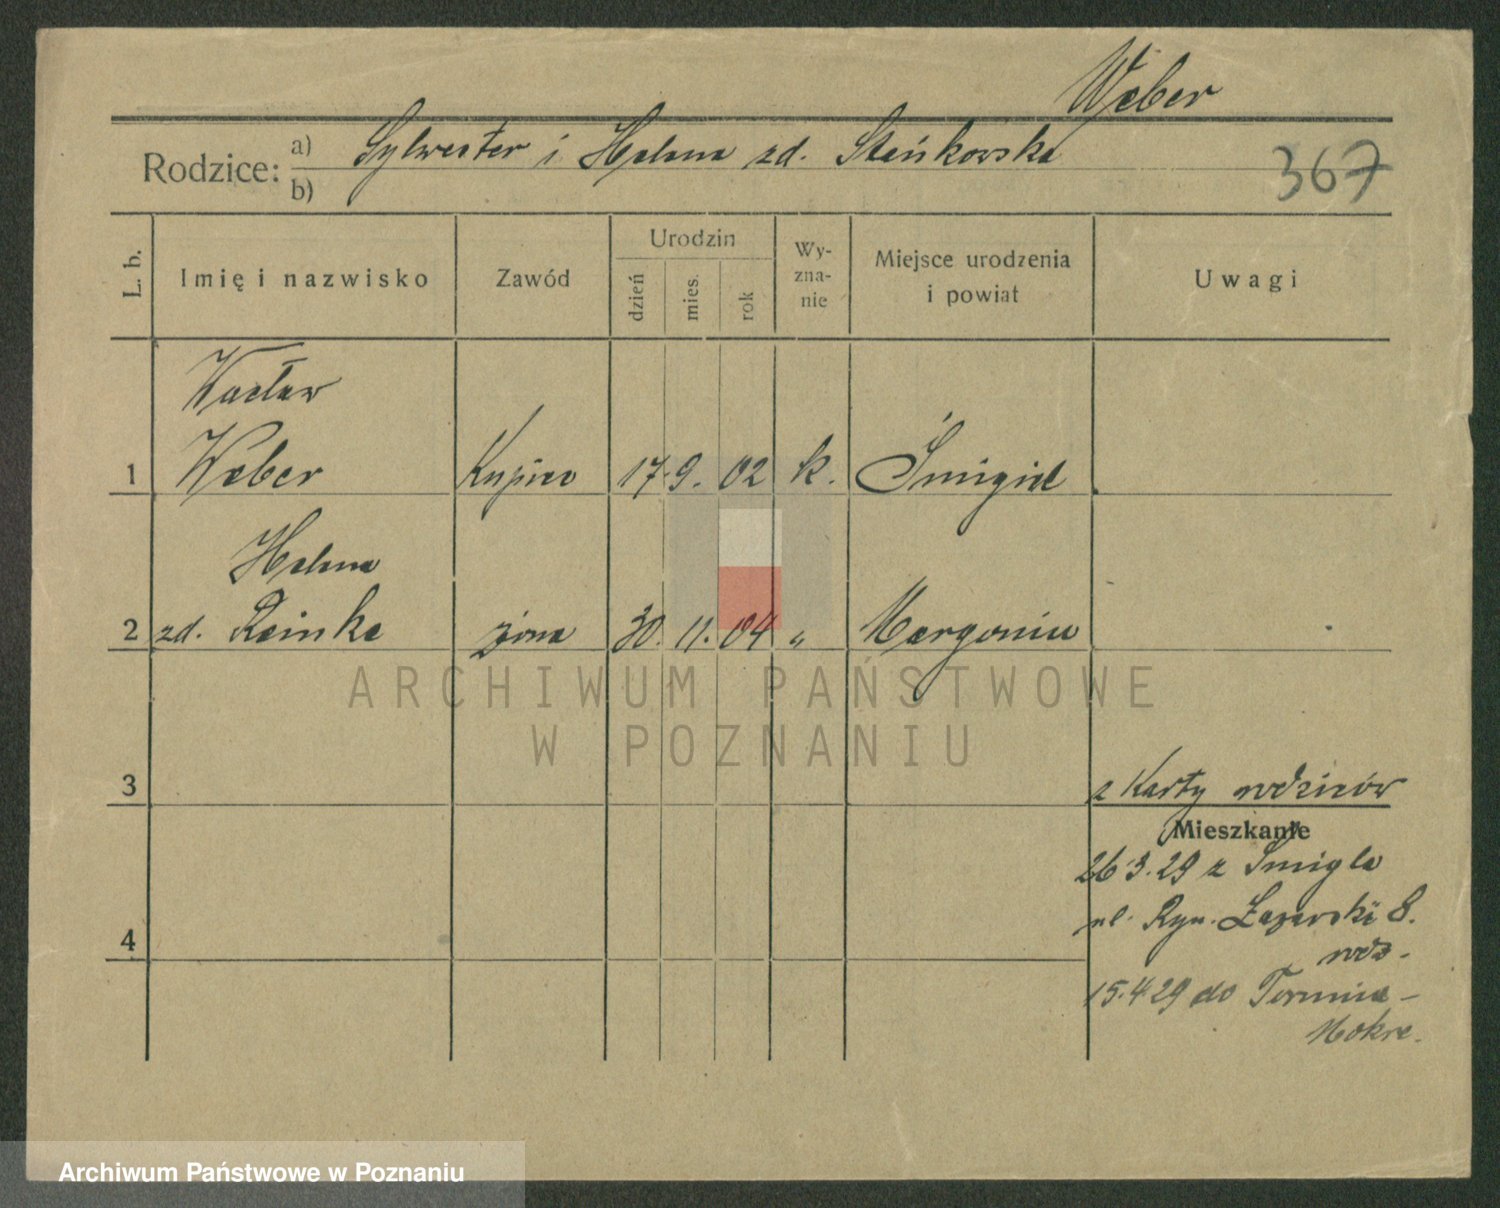 Weber
Rodzice: a) Sylwester i Helena zd. Stańkowska
b)
367
L. b.
Imię i nazwisko
Zawód
Urodzin
dzień
mies.
rok
Wy-
zna-
nie
Miejsce urodzenia
i powiat
Uwagi
Wacław
1 Weber Kupiec 17. 9. 02 k. Śmigiel
Helena
2 zd. Reinke żona 30. 11. 04 " Margonin
ARCHIWUM PAŃSTWOWE
W POZNANIU
3
z Karty rodziców
Mieszkanie
26 3. 29 z Śmigla
ul. Ryn. Łazarski 8.
rodz.
4
15. 4 29 do Torunia -
Mokre.
Archiwum Państwowe w Poznaniu